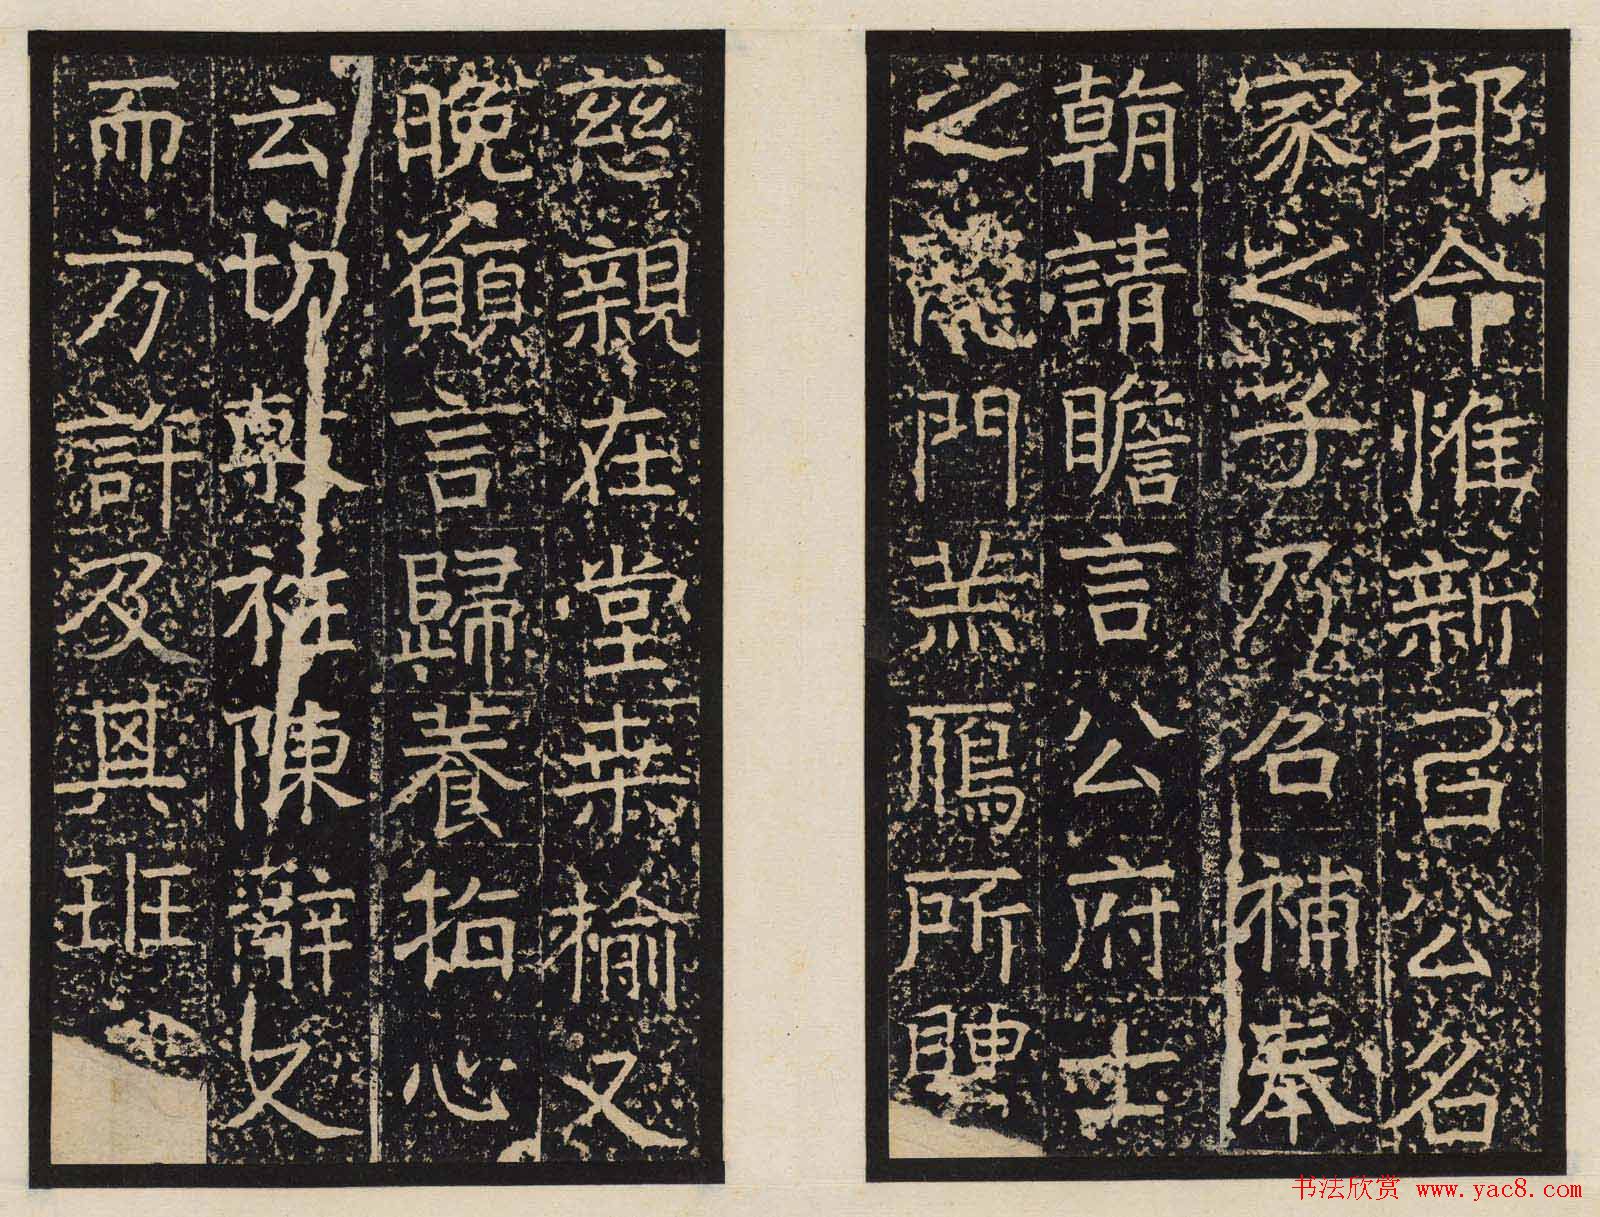 邦命惟新以公名
家之子乃召補奉
朝請瞻言公府士
之龍門羔鴈所聘
慈親在堂桒榆又
晚願言歸養指心
云切衽陳辭久
而方許及其班
书法欣赏 www.yac8.com